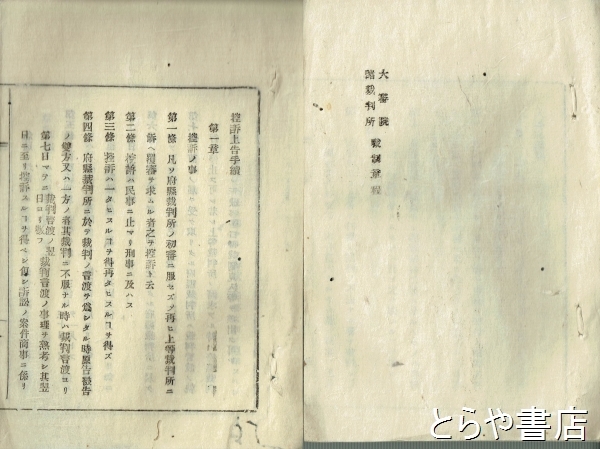 大審院
諸裁判所 職制章程
控訴上告手續
第一章
控訴ノ事
第一條 凡ソ府縣裁判所ノ初審ニ服セズノ再ヒ上等裁判所ニ
訴ヘ覆審ヲ求ムル者之ヲ控訴ト云
第二條 控訴ハ民事ニ止マリ刑事ニ及ハス
第三條 控訴ハ一タヒスルヿヲ得再タヒスルヿヲ得ズ
第四條 府縣裁判所ニ於テ裁判ノ言渡ヲ爲シタル時原告被告
ノ雙方又ハ一方ノ者其裁判ニ不服ナル時ハ裁判言渡ヨリ
第七日マテニ 裁判言渡ノ翌日ヨリ數フ 裁判言渡ノ事理ヲ熟考シ其翌
日ニ至リ控訴スルヿヲ得ベシ但シ訴訟ノ案件商事ニ係リ
とらや書店